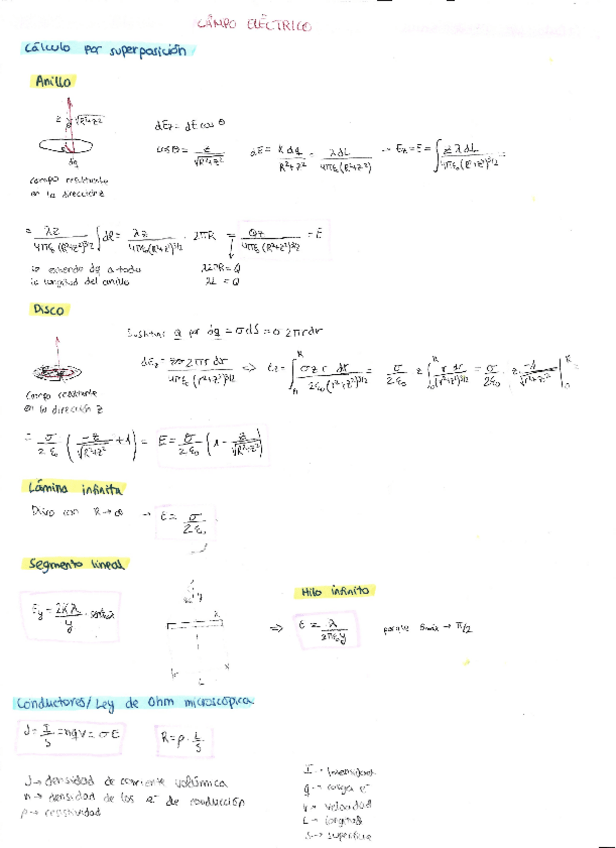 CAMPO ELÉCTRICO
Cálculo por superposición
Anillo
z √R²+z²
dq
campo resultante
en la dirección z
dEz = dE cos θ
cos θ = z/√R²+z²
dE = K dq/R²+z² = λdL/4πε₀(R²+z²) ∴ Ez = E = ∫ zλdL/4πε₀(R²+z²)^3/2 =
= λz/4πε₀(R²+z²)^3/2 ∫dl = λz/4πε₀(R²+z²)^3/2 · 2πR = Qz/4πε₀(R²+z²)^3/2 = E
lo extiendo dq a toda
la longitud del anillo
λ2πR = Q
λL = Q
Disco
campo resultante
en la dirección z
Sustituir Q por dq = σdS = σ 2πrdr
dEz = zσ2πr dr/4πε₀(r²+z²)^3/2 ⇒ Ez = ∫₀^R σz r dr/2ε₀(r²+z²)^3/2 = σ/2ε₀ z ∫₀^R r dr/(r²+z²)^3/2 = σ/2ε₀ z · -1/√r²+z² |₀^R =
= σ/2ε₀ (-z/√R²+z² + 1) = E = σ/2ε₀ (1 - z/√R²+z²)
Lámina infinita
Disco con R→∞ → E = σ/2ε₀
Segmento lineal
Ey = 2Kλ/y
y
λ
L
⇒
Hilo infinito
E = λ/2πε₀y
porque → π/2
Conductores/Ley de Ohm microscópica
J = I/S = nqv = σE
R = ρ · L/S
J → densidad de corriente volúmica
n → densidad de los e⁻ de conducción
ρ → resistividad
I → Intensidad
q → carga e⁻
v → velocidad
L → longitud
S → superficie